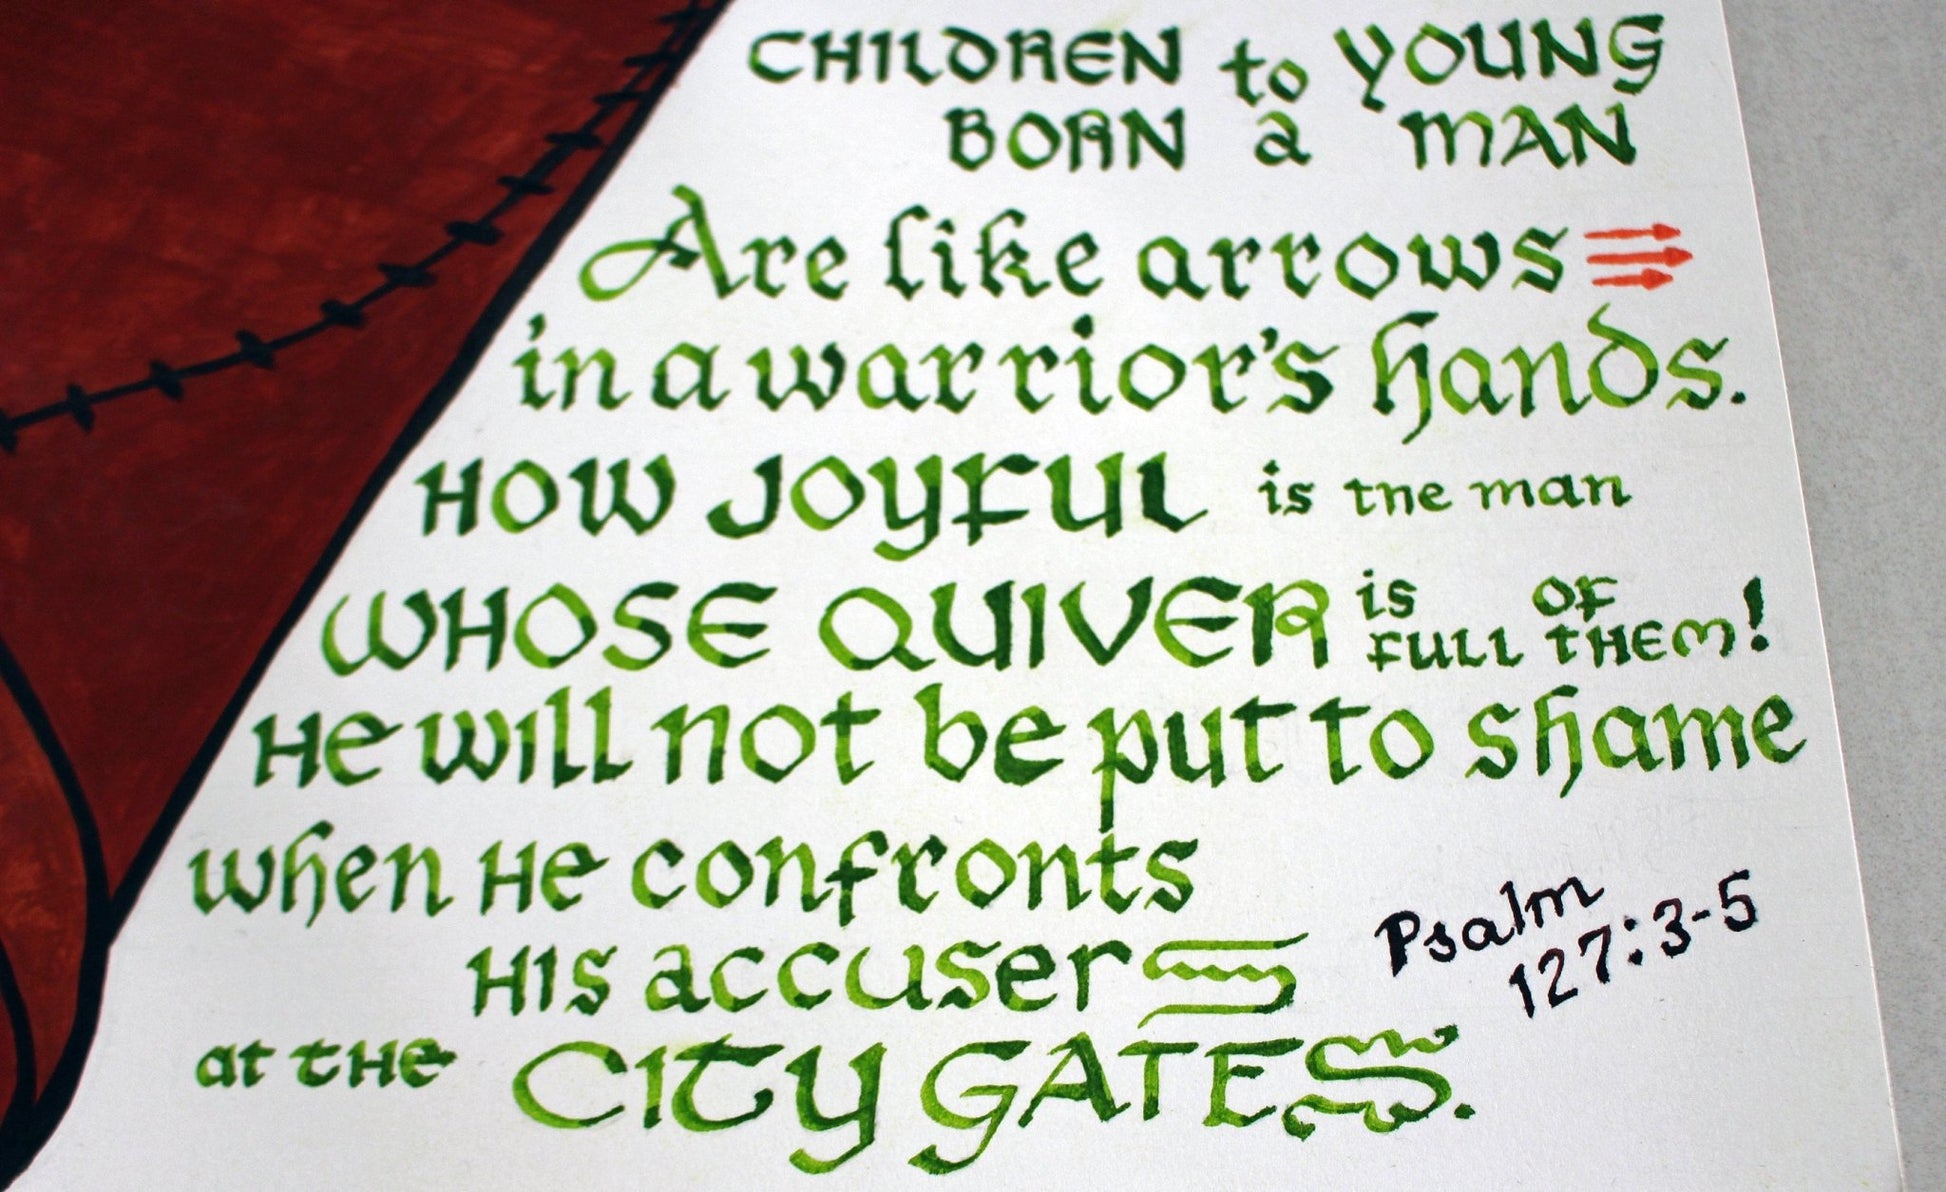 CHILDREN to YOUNG
BORN a MAN
Are like arrows
in a warrior's hands.
HOW JOYFUL is the man
WHOSE QUIVER is FULL OF THEM!
He will not be put to shame
when He confronts
His accusers
at the CITY GATES.
Psalm
127:3-5